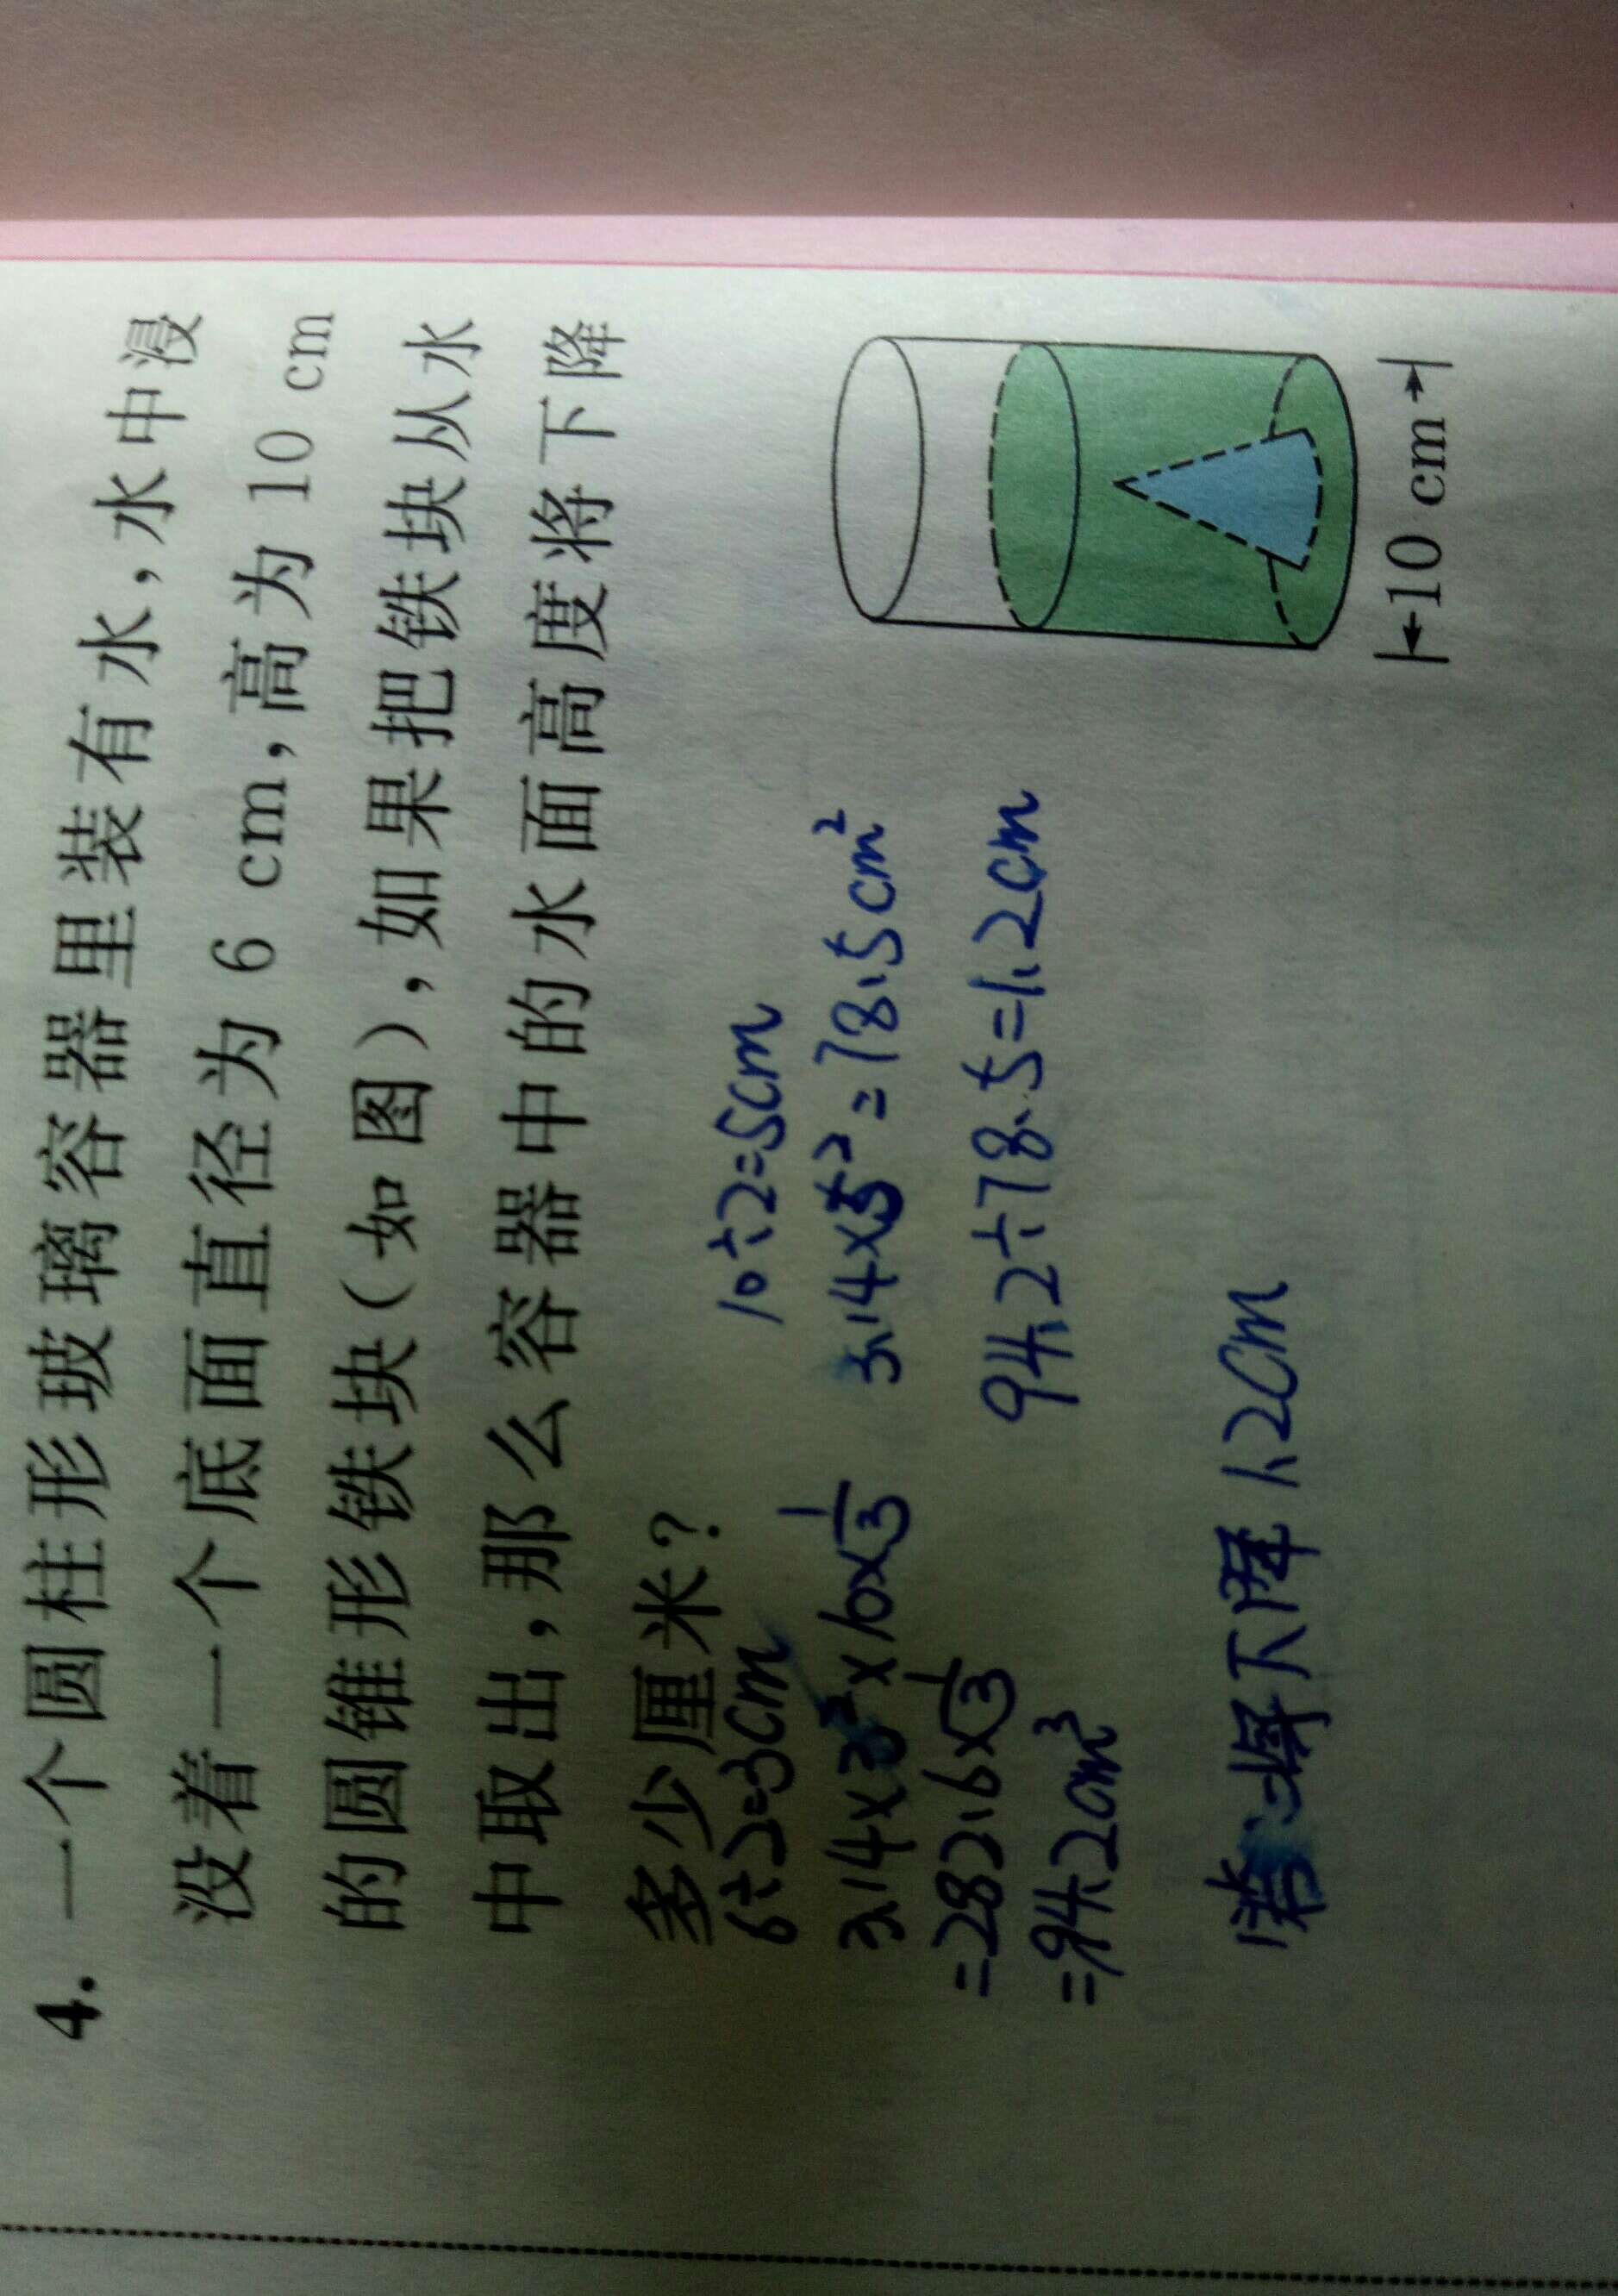 4. 一个圆柱形玻璃容器里装有水,水中浸
没着一个底面直径为 6 cm,高为 10 cm
的圆锥形铁块(如图),如果把铁块从水
中取出,那么容器中的水面高度将下降
多少厘米?
6÷2=3cm
3.14×3²×10×1/3
=282.6×1/3
=94.2cm³
10÷2=5cm
3.14×5²=78.5cm²
94.2÷78.5=1.2cm
10 cm
答:将下降1.2cm